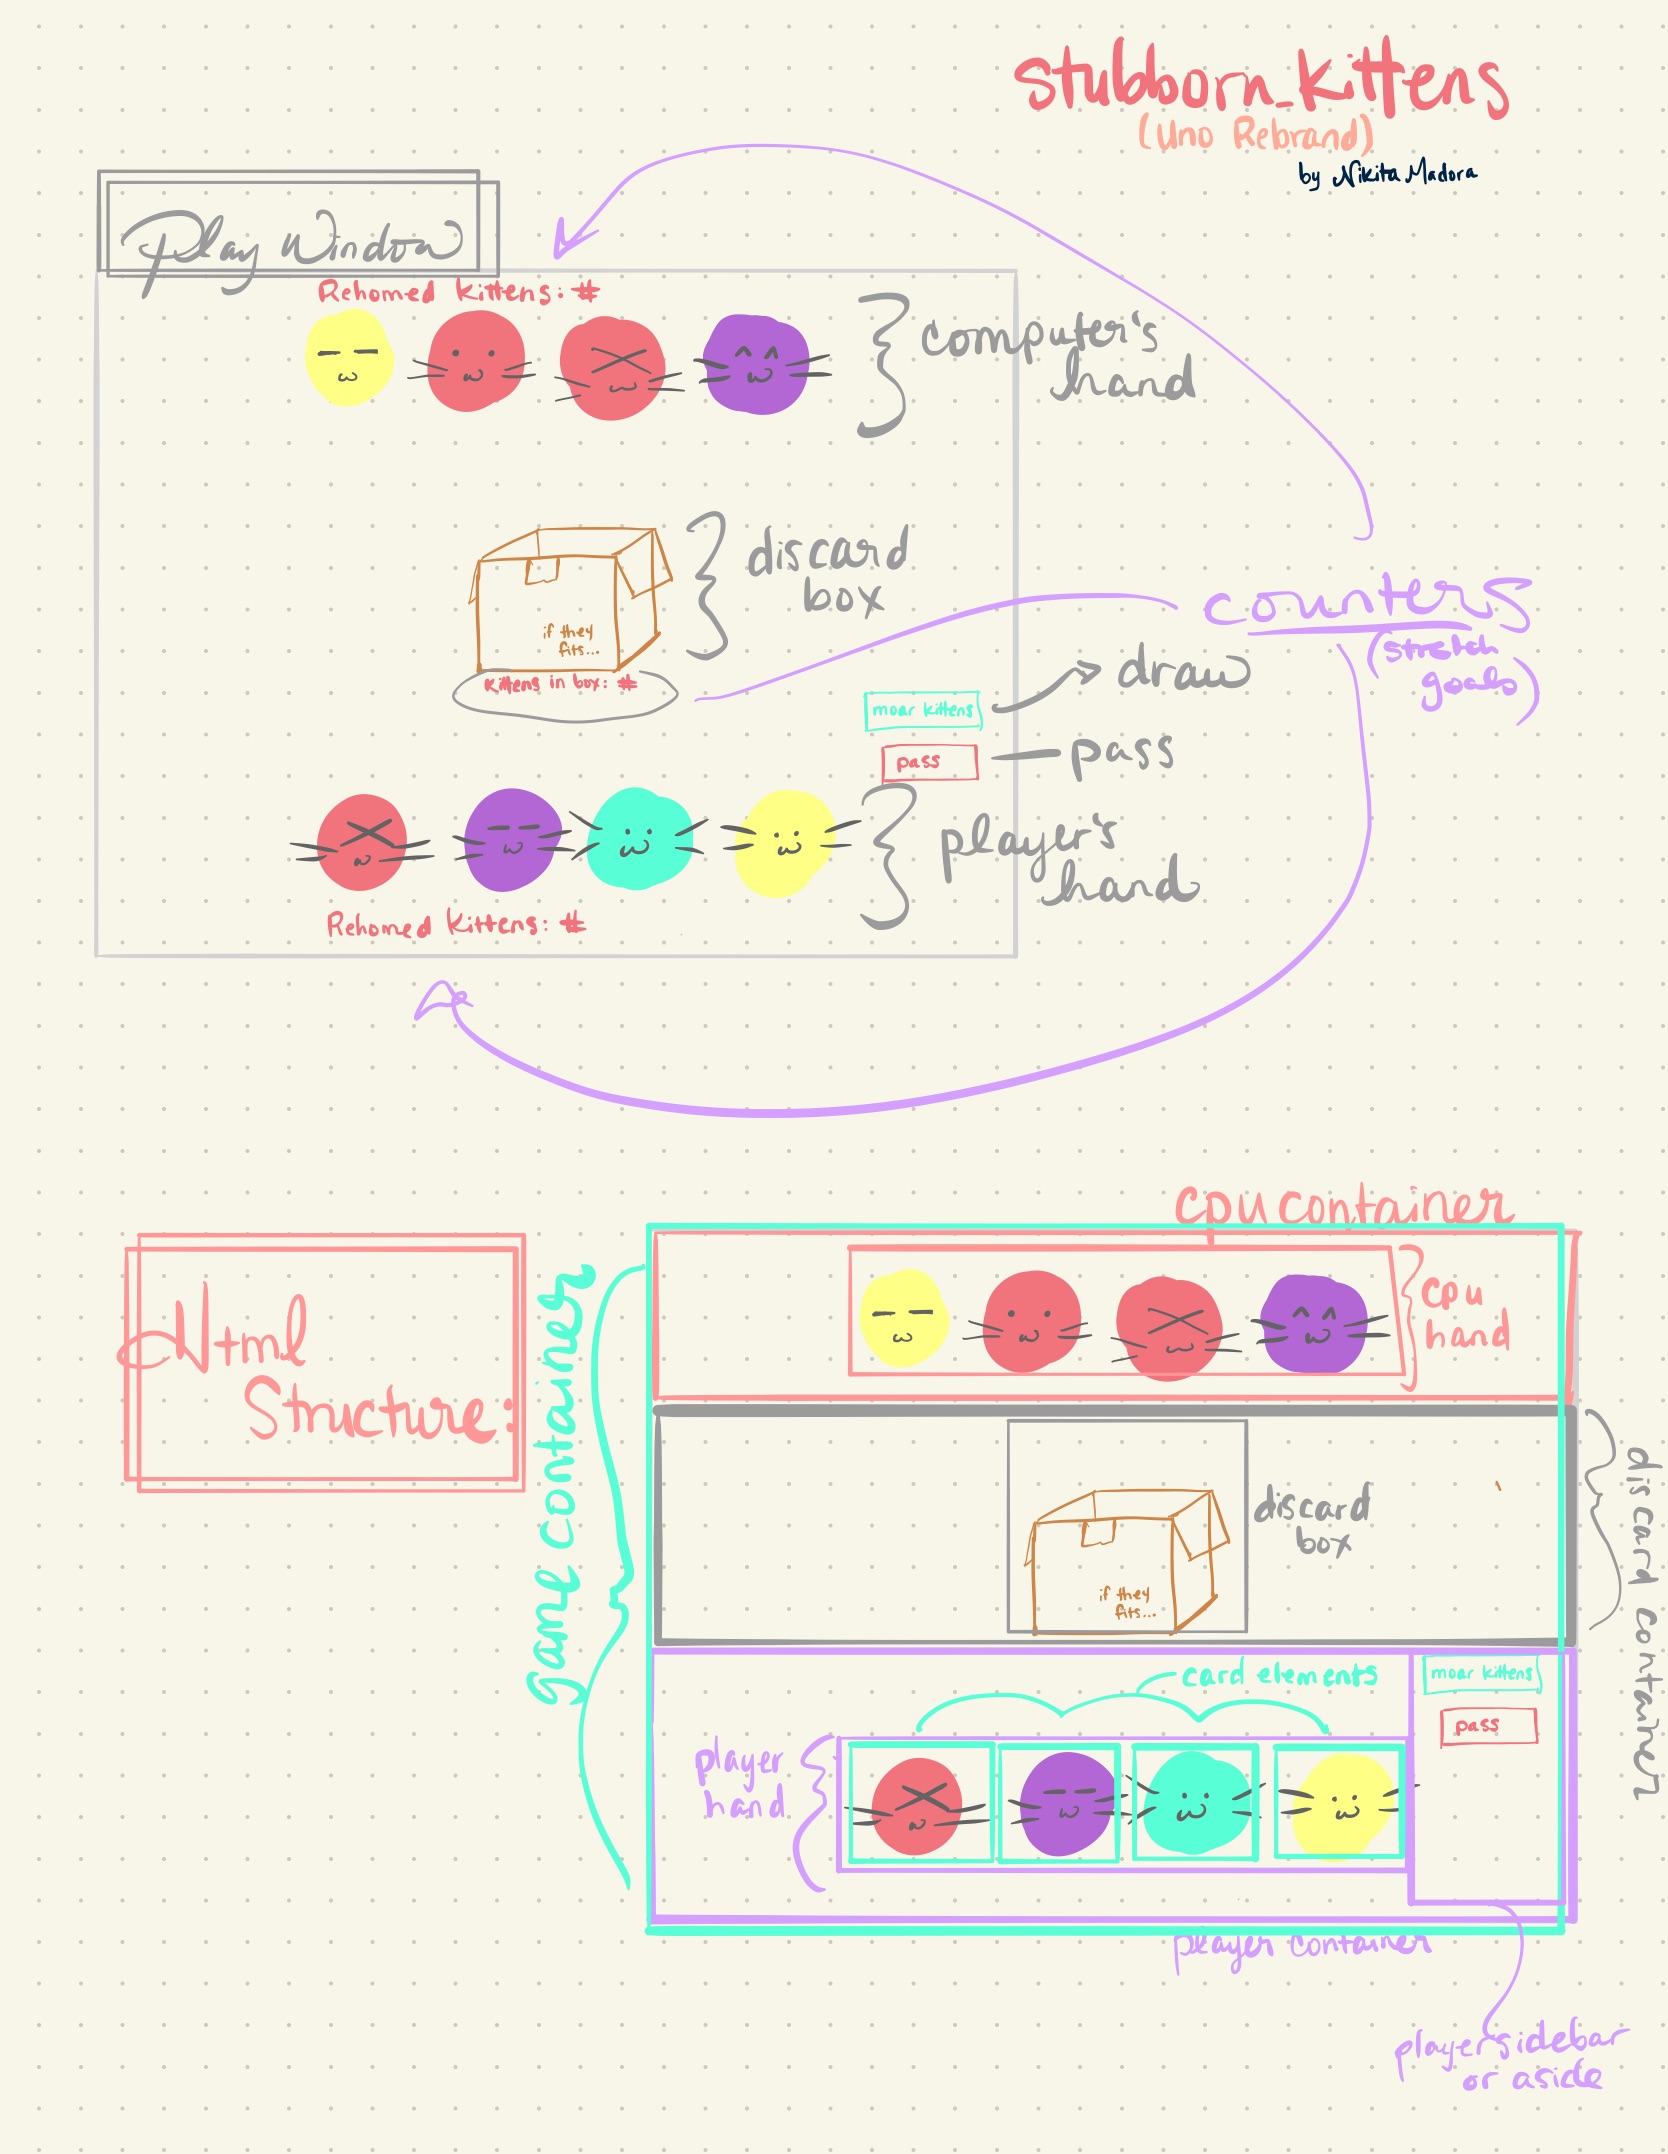 Stubborn_Kittens
(Uno Rebrand)
by Nikita Madora
Play Window
Rehomed Kittens: #
computer's
hand
discard
box
if they
fits...
Kittens in box: #
counters
(stretch
goals)
moar kittens
draw
pass
pass
player's
hand
Rehomed Kittens: #
Html
Structure:
game container
cpu container
cpu
hand
discard
box
if they
fits...
discard container
card elements
moar kittens
pass
player
hand
player container
player sidebar
or aside